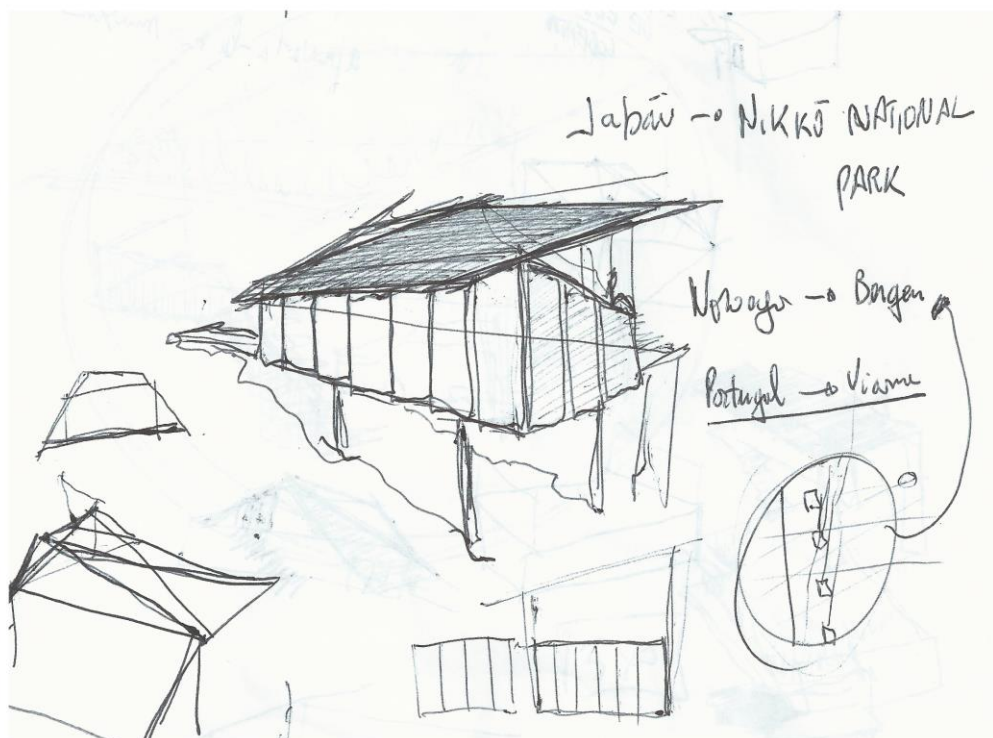 Japón → NIKKŌ NATIONAL
PARK
Noruega → Bergen
Portugal → Viana